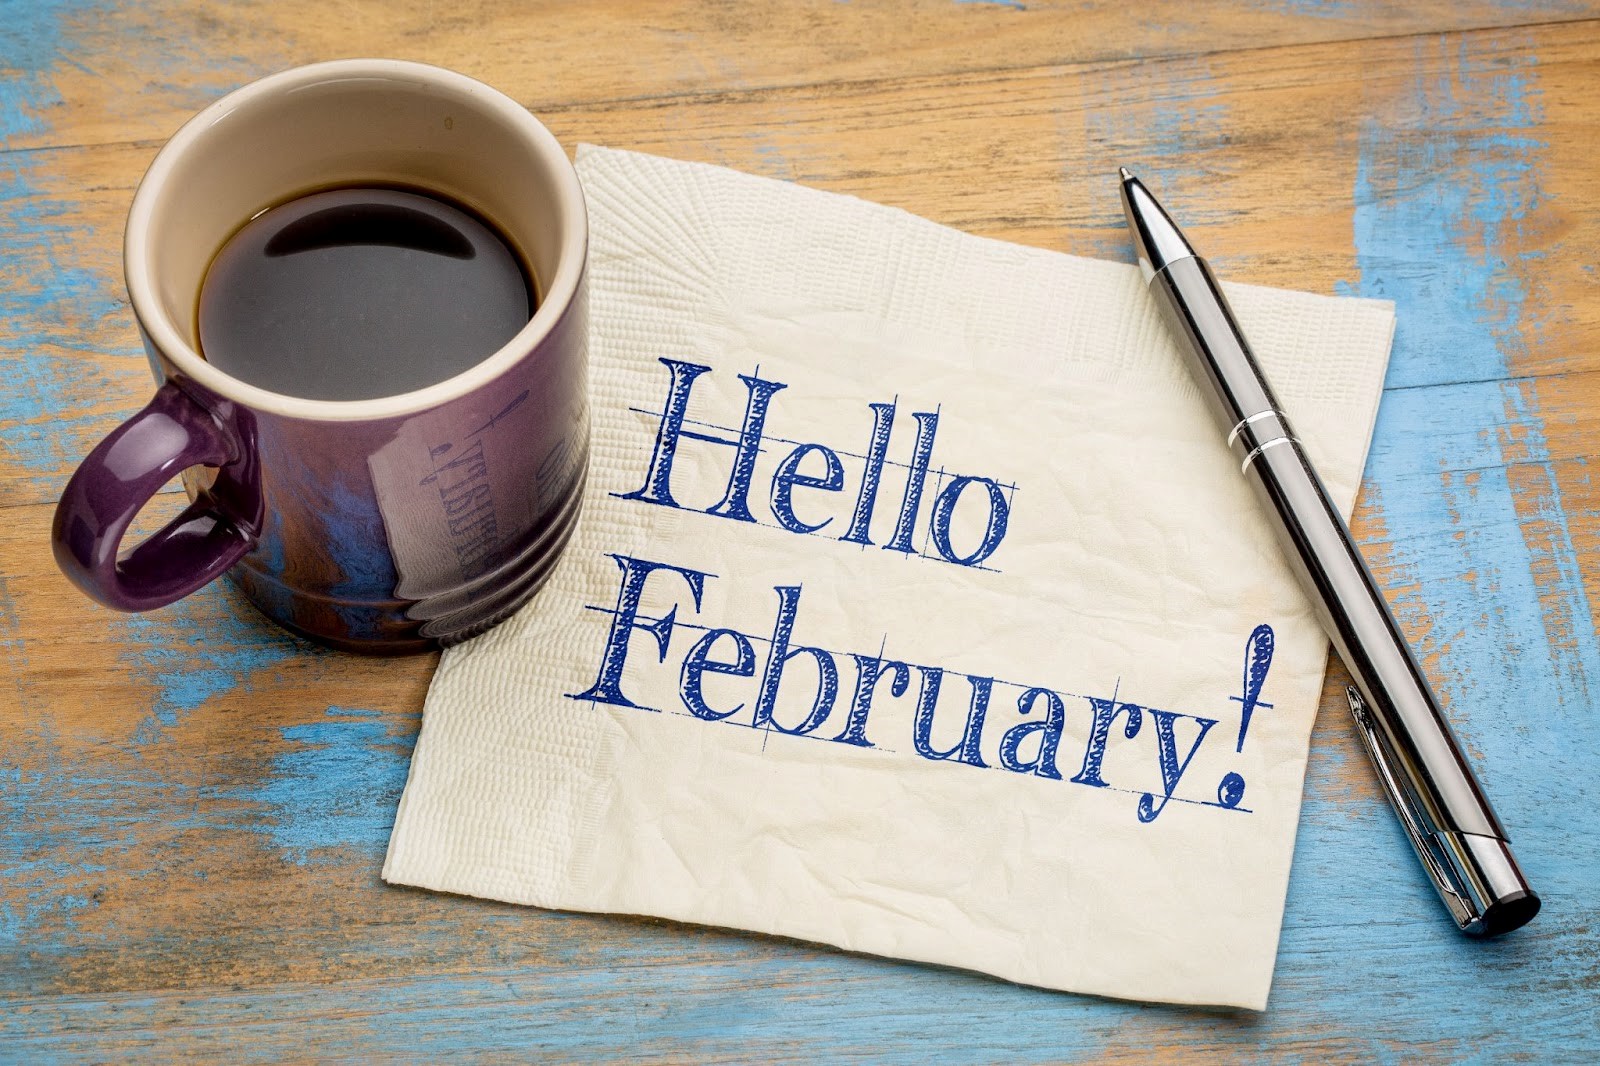 Hello
February!